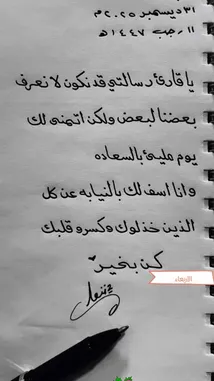 ٣١ ديسمبر ٢٠٢٥م
١١ رجب ١٤٤٧ھ
يا قارئ رسالتي قد نكون لا نعرف
بعضنا لبعض ولكن اتمنى لك
يوم مليئ بالسعاده
وانا اسف لك بالنيابه عن كل
الذين خذلوك وكسرو قلبك
كن بخير
الاربعاء